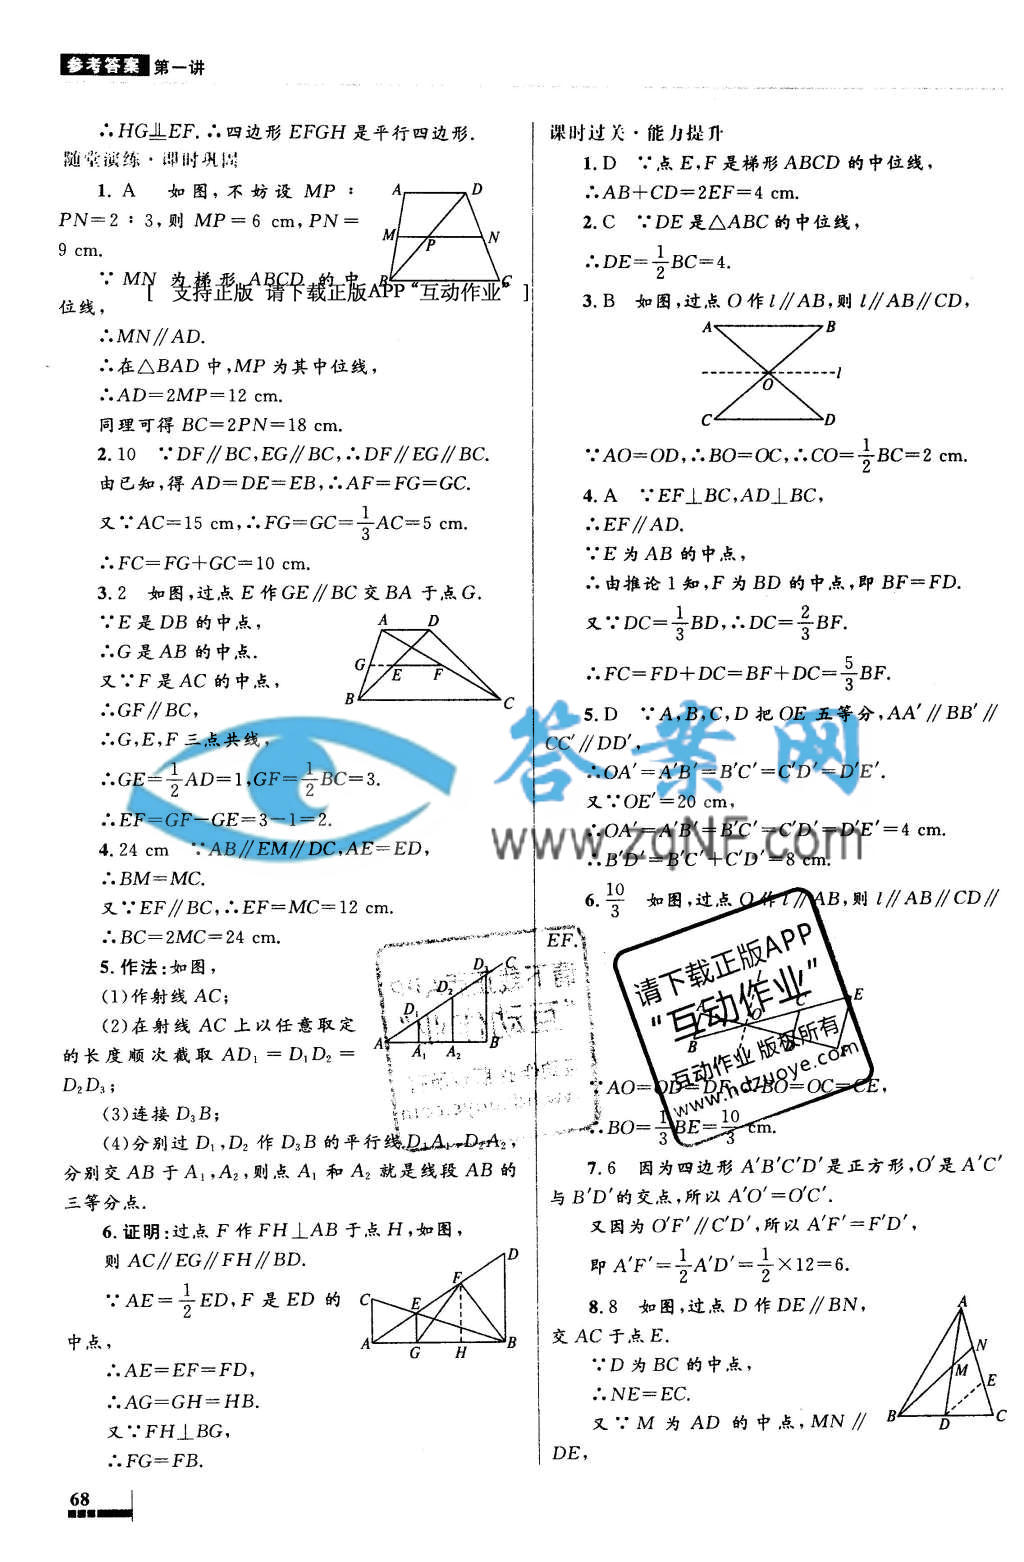 参考答案 第一讲
∴HG∥EF.∴四边形 EFGH 是平行四边形.
随堂演练·即时巩固
1. A 如图,不妨设 MP∶
PN=2∶3,则 MP=6 cm,PN=
9 cm.
∵ MN 为梯形 ABCD 的中
位线,
∴MN∥AD.
∴在△BAD 中,MP 为其中位线,
∴AD=2MP=12 cm.
同理可得 BC=2PN=18 cm.
A D
M P N
B C
[ 支持正版 请下载正版APP“互动作业” ]
2. 10 ∵DF∥BC,EG∥BC,∴DF∥EG∥BC.
由已知,得 AD=DE=EB,∴AF=FG=GC.
又∵AC=15 cm,∴FG=GC=1/3AC=5 cm.
∴FC=FG+GC=10 cm.
3. 2 如图,过点 E 作GE∥BC 交 BA 于点G.
∵E 是 DB 的中点,
∴G 是 AB 的中点.
又∵F 是 AC 的中点,
∴GF∥BC,
∴G,E,F 三点共线,
∴GE=1/2AD=1,GF=1/2BC=3.
∴EF=GF-GE=3-1=2.
A D
G E F
B C
4. 24 cm ∵AB∥EM∥DC,AE=ED,
∴BM=MC.
又∵EF∥BC,∴EF=MC=12 cm.
∴BC=2MC=24 cm.
5. 作法:如图,
(1)作射线 AC;
(2)在射线 AC 上以任意取定
的长度顺次截取 AD₁=D₁D₂=
D₂D₃;
(3)连接 D₃B;
(4)分别过 D₁,D₂ 作 D₃B 的平行线 D₁A₁、D₂A₂,
分别交 AB 于 A₁,A₂,则点 A₁ 和 A₂ 就是线段 AB 的
三等分点.
D₃ C
D₂
D₁
A A₁ A₂ B
6. 证明:过点 F 作 FH⊥AB 于点 H,如图,
则 AC∥EG∥FH∥BD.
∵AE=1/2ED,F 是 ED 的
中点,
∴AE=EF=FD,
∴AG=GH=HB.
又∵FH⊥BG,
∴FG=FB.
D
F
C E
A G H B
68
课时过关·能力提升
1. D ∵点 E,F 是梯形 ABCD 的中位线,
∴AB+CD=2EF=4 cm.
2. C ∵DE 是△ABC 的中位线,
∴DE=1/2BC=4.
3. B 如图,过点 O 作 l∥AB,则 l∥AB∥CD,
A B
O l
C D
∵AO=OD,∴BO=OC,∴CO=1/2BC=2 cm.
4. A ∵EF⊥BC,AD⊥BC,
∴EF∥AD.
∵E 为 AB 的中点,
∴由推论 1 知,F 为 BD 的中点,即 BF=FD.
又∵DC=1/3BD,∴DC=2/3BF.
∴FC=FD+DC=BF+DC=5/3BF.
5. D ∵A,B,C,D 把 OE 五等分,AA′∥BB′∥
CC′∥DD′,
∴OA′=A′B′=B′C′=C′D′=D′E′.
又∵OE′=20 cm,
∴OA′=A′B′=B′C′=C′D′=D′E′=4 cm.
∴B′D′=B′C′+C′D′=8 cm.
答案网
www.zqNF.com
6. 10/3 如图,过点 O 作 l∥AB,则 l∥AB∥CD∥
EF.
请下载正版APP
“互动作业”
互动作业 版权所有
www.hdzuoye.com
∵AO=OD=DF,∴BO=OC=CE,
∴BO=1/3BE=10/3 cm.
7. 6 因为四边形 A′B′C′D′是正方形,O′是 A′C′
与 B′D′的交点,所以 A′O′=O′C′.
又因为 O′F′∥C′D′,所以 A′F′=F′D′,
即 A′F′=1/2A′D′=1/2×12=6.
8. 8 如图,过点 D 作 DE∥BN,
交 AC 于点 E.
∵D 为 BC 的中点,
∴NE=EC.
又∵ M 为 AD 的中点,MN∥
DE,
A
N
M E
B D C